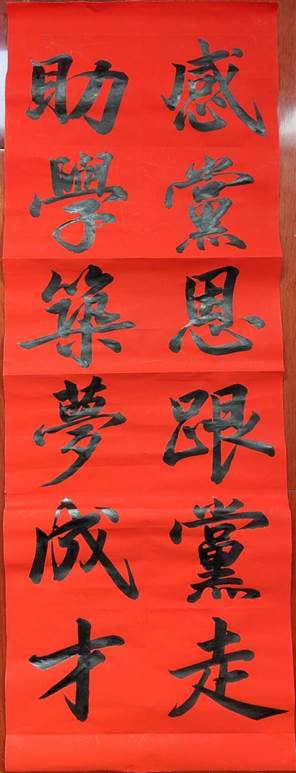 感黨恩跟黨走
助學築夢成才